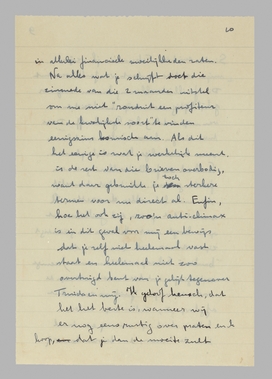 10
in allerlei financiele moeilijkheden zaten.
Na alles wat je schrijft doet die
van die 2 maanden uitstel
om me niet "
van de kwalijkste soort" te vinden
eenigszins komisch aan. Als dit
het eenige is wat je werkelijk meent
is de rest van die brieven overbodig,
want daar gebruikte je toch sterkere
termen voor me direct al. Enfin,
hoe het ook zij, zoo'n anti-climax
is in dit geval voor mij een bewijs
dat je zelf niet heelemaal vast
staat en heelemaal niet zoo
overtuigd bent van je gelijk tegenover
Truida en mij. Ik geloof heusch, dat
het het beste is, wanneer wij
er nog eens rustig over praten en ik
hoop, dat je dan de moeite zult